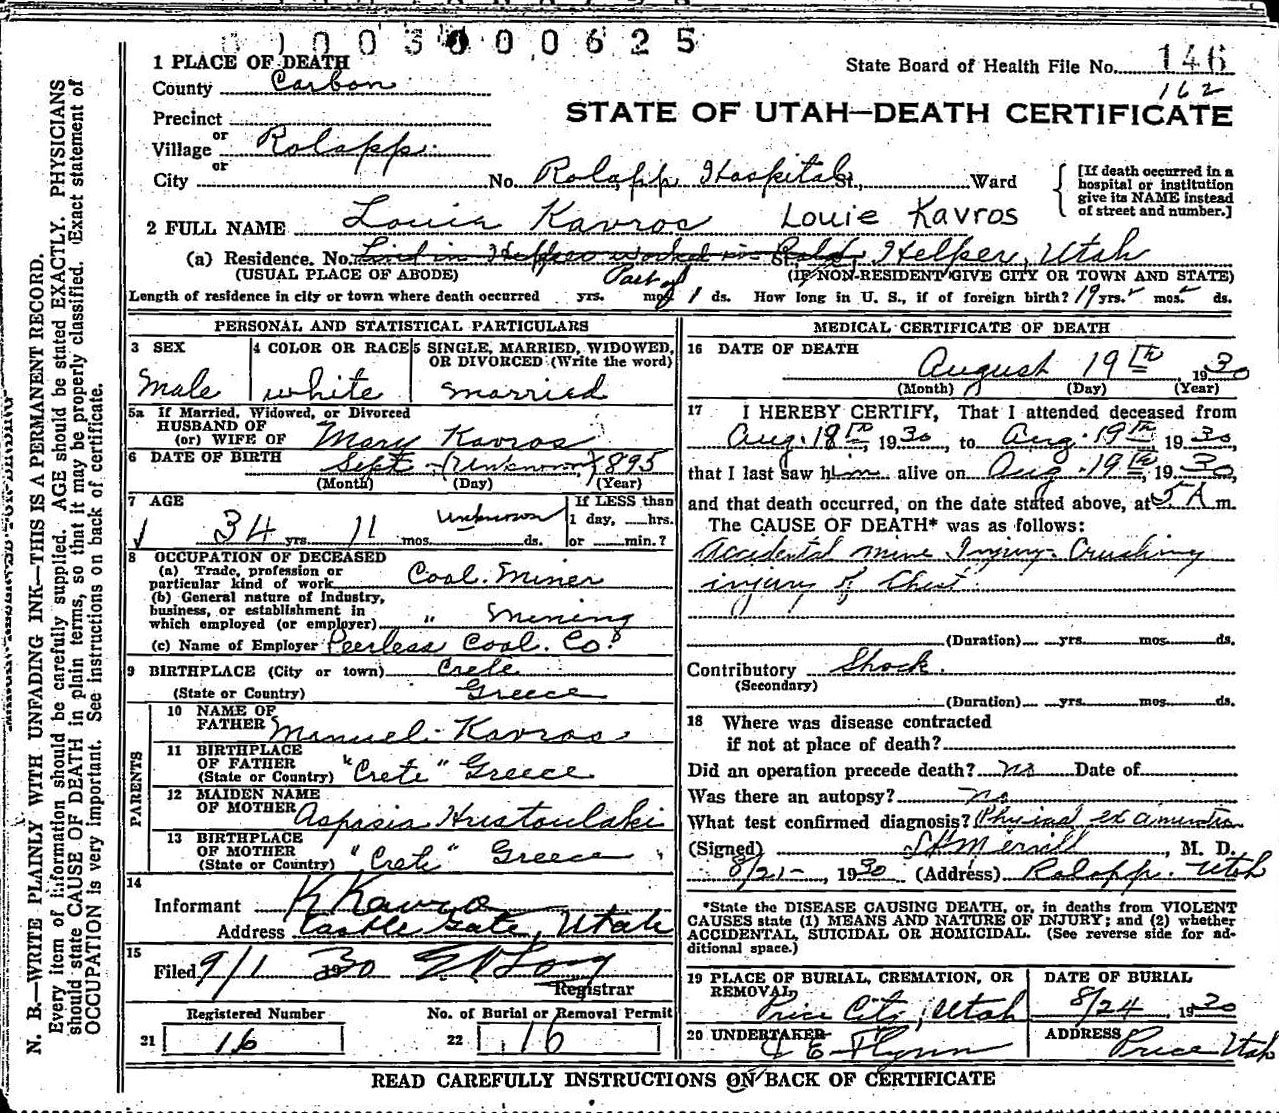 0 1 0 0 3 0 0 0 6 2 5
1 PLACE OF DEATH
State Board of Health File No. 146
162
County Carbon
STATE OF UTAH—DEATH CERTIFICATE
Precinct
or
Village Rolapp
or
City No. Rolapp Hospital St., Ward
[If death occurred in a hospital or institution give its NAME instead of street and number.]
2 FULL NAME Louis Kavros Louie Kavros
(a) Residence. No. St., Helper, Utah
(USUAL PLACE OF ABODE) (IF NON-RESIDENT GIVE CITY OR TOWN AND STATE)
Length of residence in city or town where death occurred yrs. mos. Part of 1 ds. How long in U. S., if of foreign birth? 19 yrs. mos. ds.
PERSONAL AND STATISTICAL PARTICULARS
3 SEX
Male
4 COLOR OR RACE
white
5 SINGLE, MARRIED, WIDOWED, OR DIVORCED (Write the word)
married
5a If Married, Widowed, or Divorced
HUSBAND OF
(or) WIFE OF Mary Kavros
6 DATE OF BIRTH Sept (Unknown) 1895
(Month) (Day) (Year)
7 AGE
34 yrs. 11 mos. Unknown ds.
If LESS than
1 day, hrs.
or min.?
8 OCCUPATION OF DECEASED
(a) Trade, profession or
particular kind of work Coal Miner
(b) General nature of Industry,
business, or establishment in
which employed (or employer) " Mining
(c) Name of Employer Peerless Coal. Co.
9 BIRTHPLACE (City or town) Crete
(State or Country) Greece
PARENTS
10 NAME OF
FATHER Manuel Kavros
11 BIRTHPLACE
OF FATHER
(State or Country) "Crete" Greece
12 MAIDEN NAME
OF MOTHER Aspasia Hustoulaki
13 BIRTHPLACE
OF MOTHER
(State or Country) "Crete" Greece
14
Informant K Kavro
Address Castle Gate, Utah
15
Filed 9/1 1930
Registrar
Registered Number
21 16
No. of Burial or Removal Permit
22 16
MEDICAL CERTIFICATE OF DEATH
16 DATE OF DEATH
August 19th 1930
(Month) (Day) (Year)
17 I HEREBY CERTIFY, That I attended deceased from
Aug. 18th, 1930, to Aug. 19th, 1930,
that I last saw him alive on Aug. 19th, 1930,
and that death occurred, on the date stated above, at 5 A. m.
The CAUSE OF DEATH* was as follows:
Accidental mine Injury. Crushing
injury of Chest
(Duration) yrs. mos. ds.
Contributory Shock.
(Secondary)
(Duration) yrs. mos. ds.
18 Where was disease contracted
if not at place of death?
Did an operation precede death? no Date of
Was there an autopsy? no
What test confirmed diagnosis? Physical examination
(Signed) Merrill, M. D.
8/21-, 1930 (Address) Rolapp. Utah
*State the DISEASE CAUSING DEATH, or, in deaths from VIOLENT
CAUSES state (1) MEANS AND NATURE OF INJURY; and (2) whether
ACCIDENTAL, SUICIDAL OR HOMICIDAL. (See reverse side for ad-
ditional space.)
19 PLACE OF BURIAL, CREMATION, OR
REMOVAL
Price City, Utah
DATE OF BURIAL
8/24 1930
20 UNDERTAKER
J E Flynn
ADDRESS
Price Utah
READ CAREFULLY INSTRUCTIONS ON BACK OF CERTIFICATE
N. B.—WRITE PLAINLY WITH UNFADING INK—THIS IS A PERMANENT RECORD.
Every item of information should be carefully supplied. AGE should be stated EXACTLY. PHYSICIANS
should state CAUSE OF DEATH in plain terms, so that it may be properly classified. Exact statement of
OCCUPATION is very important. See instructions on back of certificate.